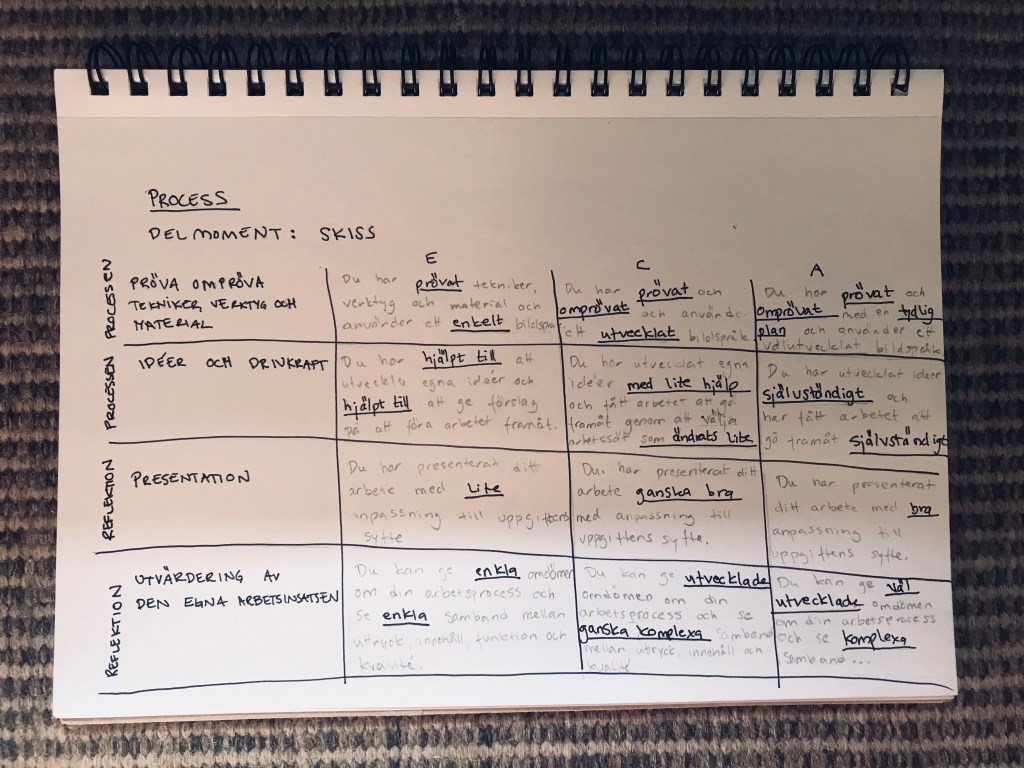 PROCESS
DELMOMENT: SKISS
E
C
A
PROCESSEN
PRÖVA OMPRÖVA
TEKNIKER, VERKTYG OCH
MATERIAL
Du har prövat tekniker,
verktyg och material och
använder ett enkelt bildspråk
Du har prövat och
omprövat och använder
ett utvecklat bildspråk
Du har prövat och
omprövat med en tydlig
plan och använder ett
välutvecklat bildspråk
PROCESSEN
IDÉER OCH DRIVKRAFT
Du har hjälpt till att
utveckla egna idéer och
hjälpt till att ge förslag
på att föra arbetet framåt.
Du har utvecklat egna
idéer med lite hjälp
och fått arbetet att gå
framåt genom att välja
arbetssätt som ändrats lite
Du har utvecklat idéer
självständigt och
har fått arbetet att
gå framåt självständigt
REFLEKTION
PRESENTATION
Du har presenterat ditt
arbete med lite
anpassning till uppgiftens
syfte
Du har presenterat ditt
arbete ganska bra
med anpassning till
uppgiftens syfte.
Du har presenterat
ditt arbete med bra
anpassning till
uppgiftens syfte.
REFLEKTION
UTVÄRDERING AV
DEN EGNA ARBETSINSATSEN
Du kan ge enkla omdömen
om din arbetsprocess och
se enkla samband mellan
uttryck, innehåll, funktion och
kvalité.
Du kan ge utvecklade
omdömen om din
arbetsprocess och se
ganska komplexa samband
mellan uttryck, innehåll och
kvalité
Du kan ge väl
utvecklade omdömen
om din arbetsprocess
och se komplexa
samband...